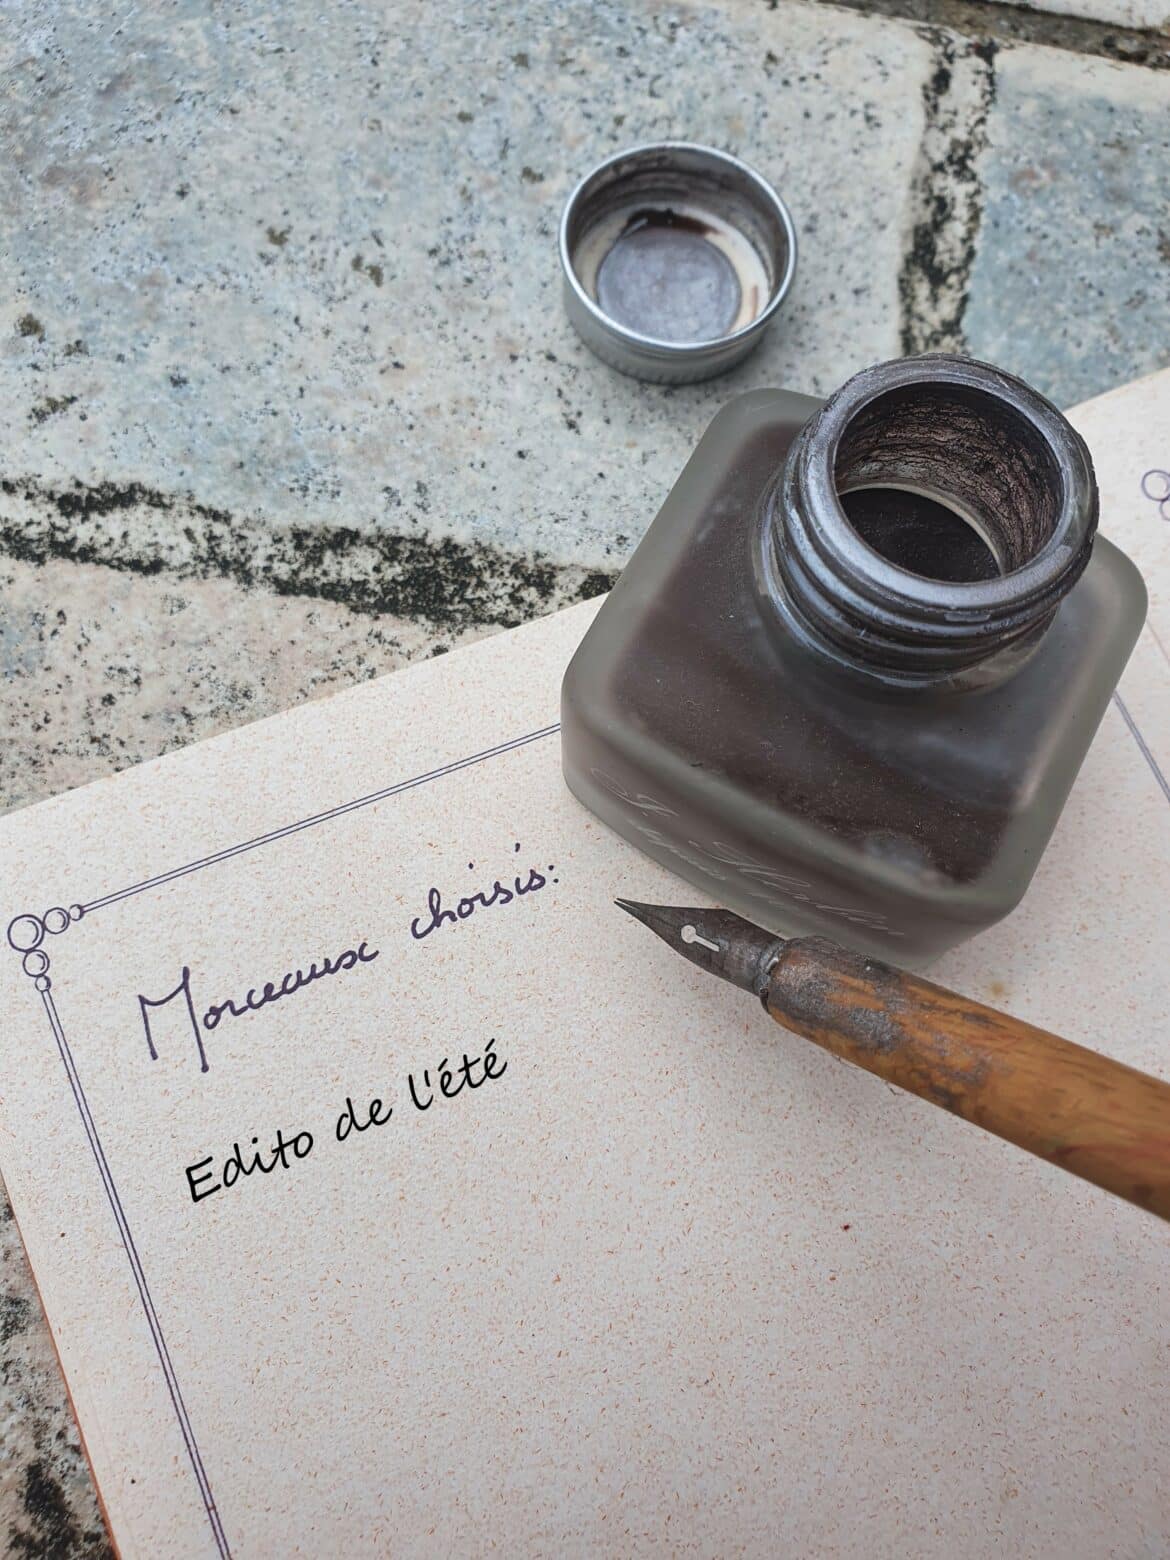 Morceaux choisis:
Edito de l'été